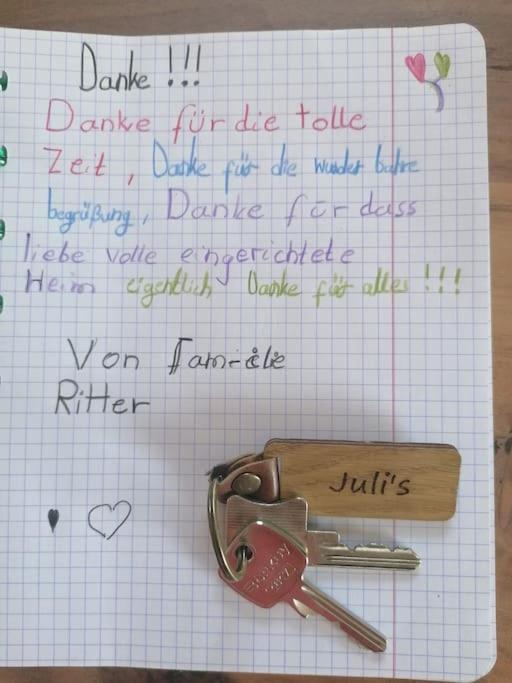 Danke !!!
Danke für die tolle
Zeit, Danke für die wunder bahre
begrüßung, Danke für dass
liebe volle eingerichtete
Heim eigentlich Danke für alles !!!
Von Familie
Ritter
Juli's